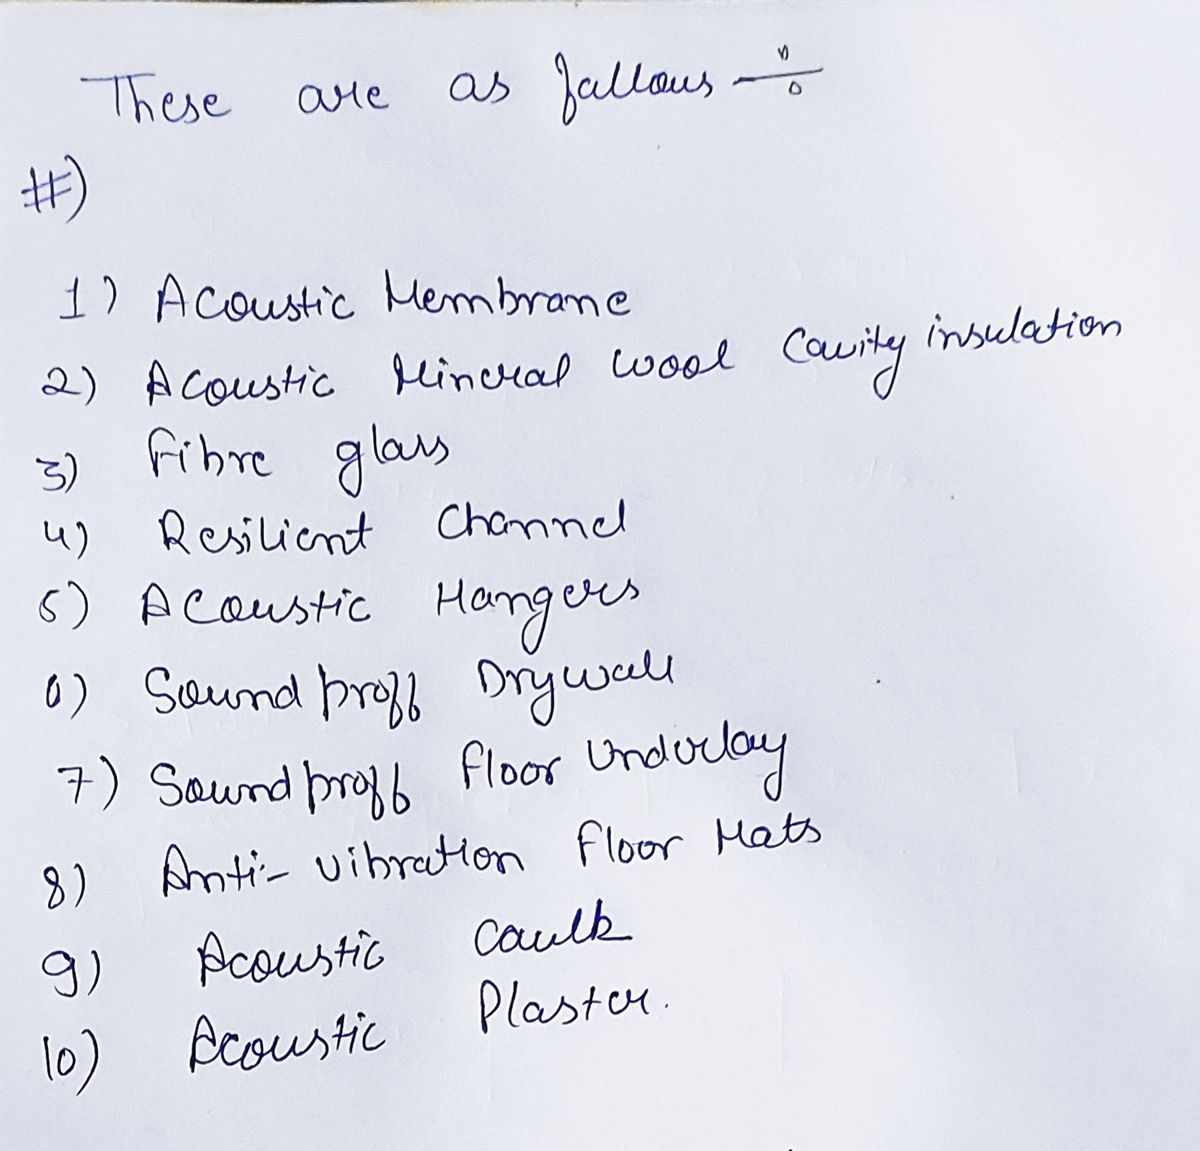 These are as fallows ÷
#)
1) Acoustic Membrane
2) Acoustic Mineral wool Cavity insulation
3) Fibre glass
4) Resilient Channel
5) Acoustic Hangers
6) Sound proff Drywall
7) Sound proff floor Underlay
8) Anti- vibration Floor Mats
9) Acoustic Caulk
10) Acoustic Plaster.